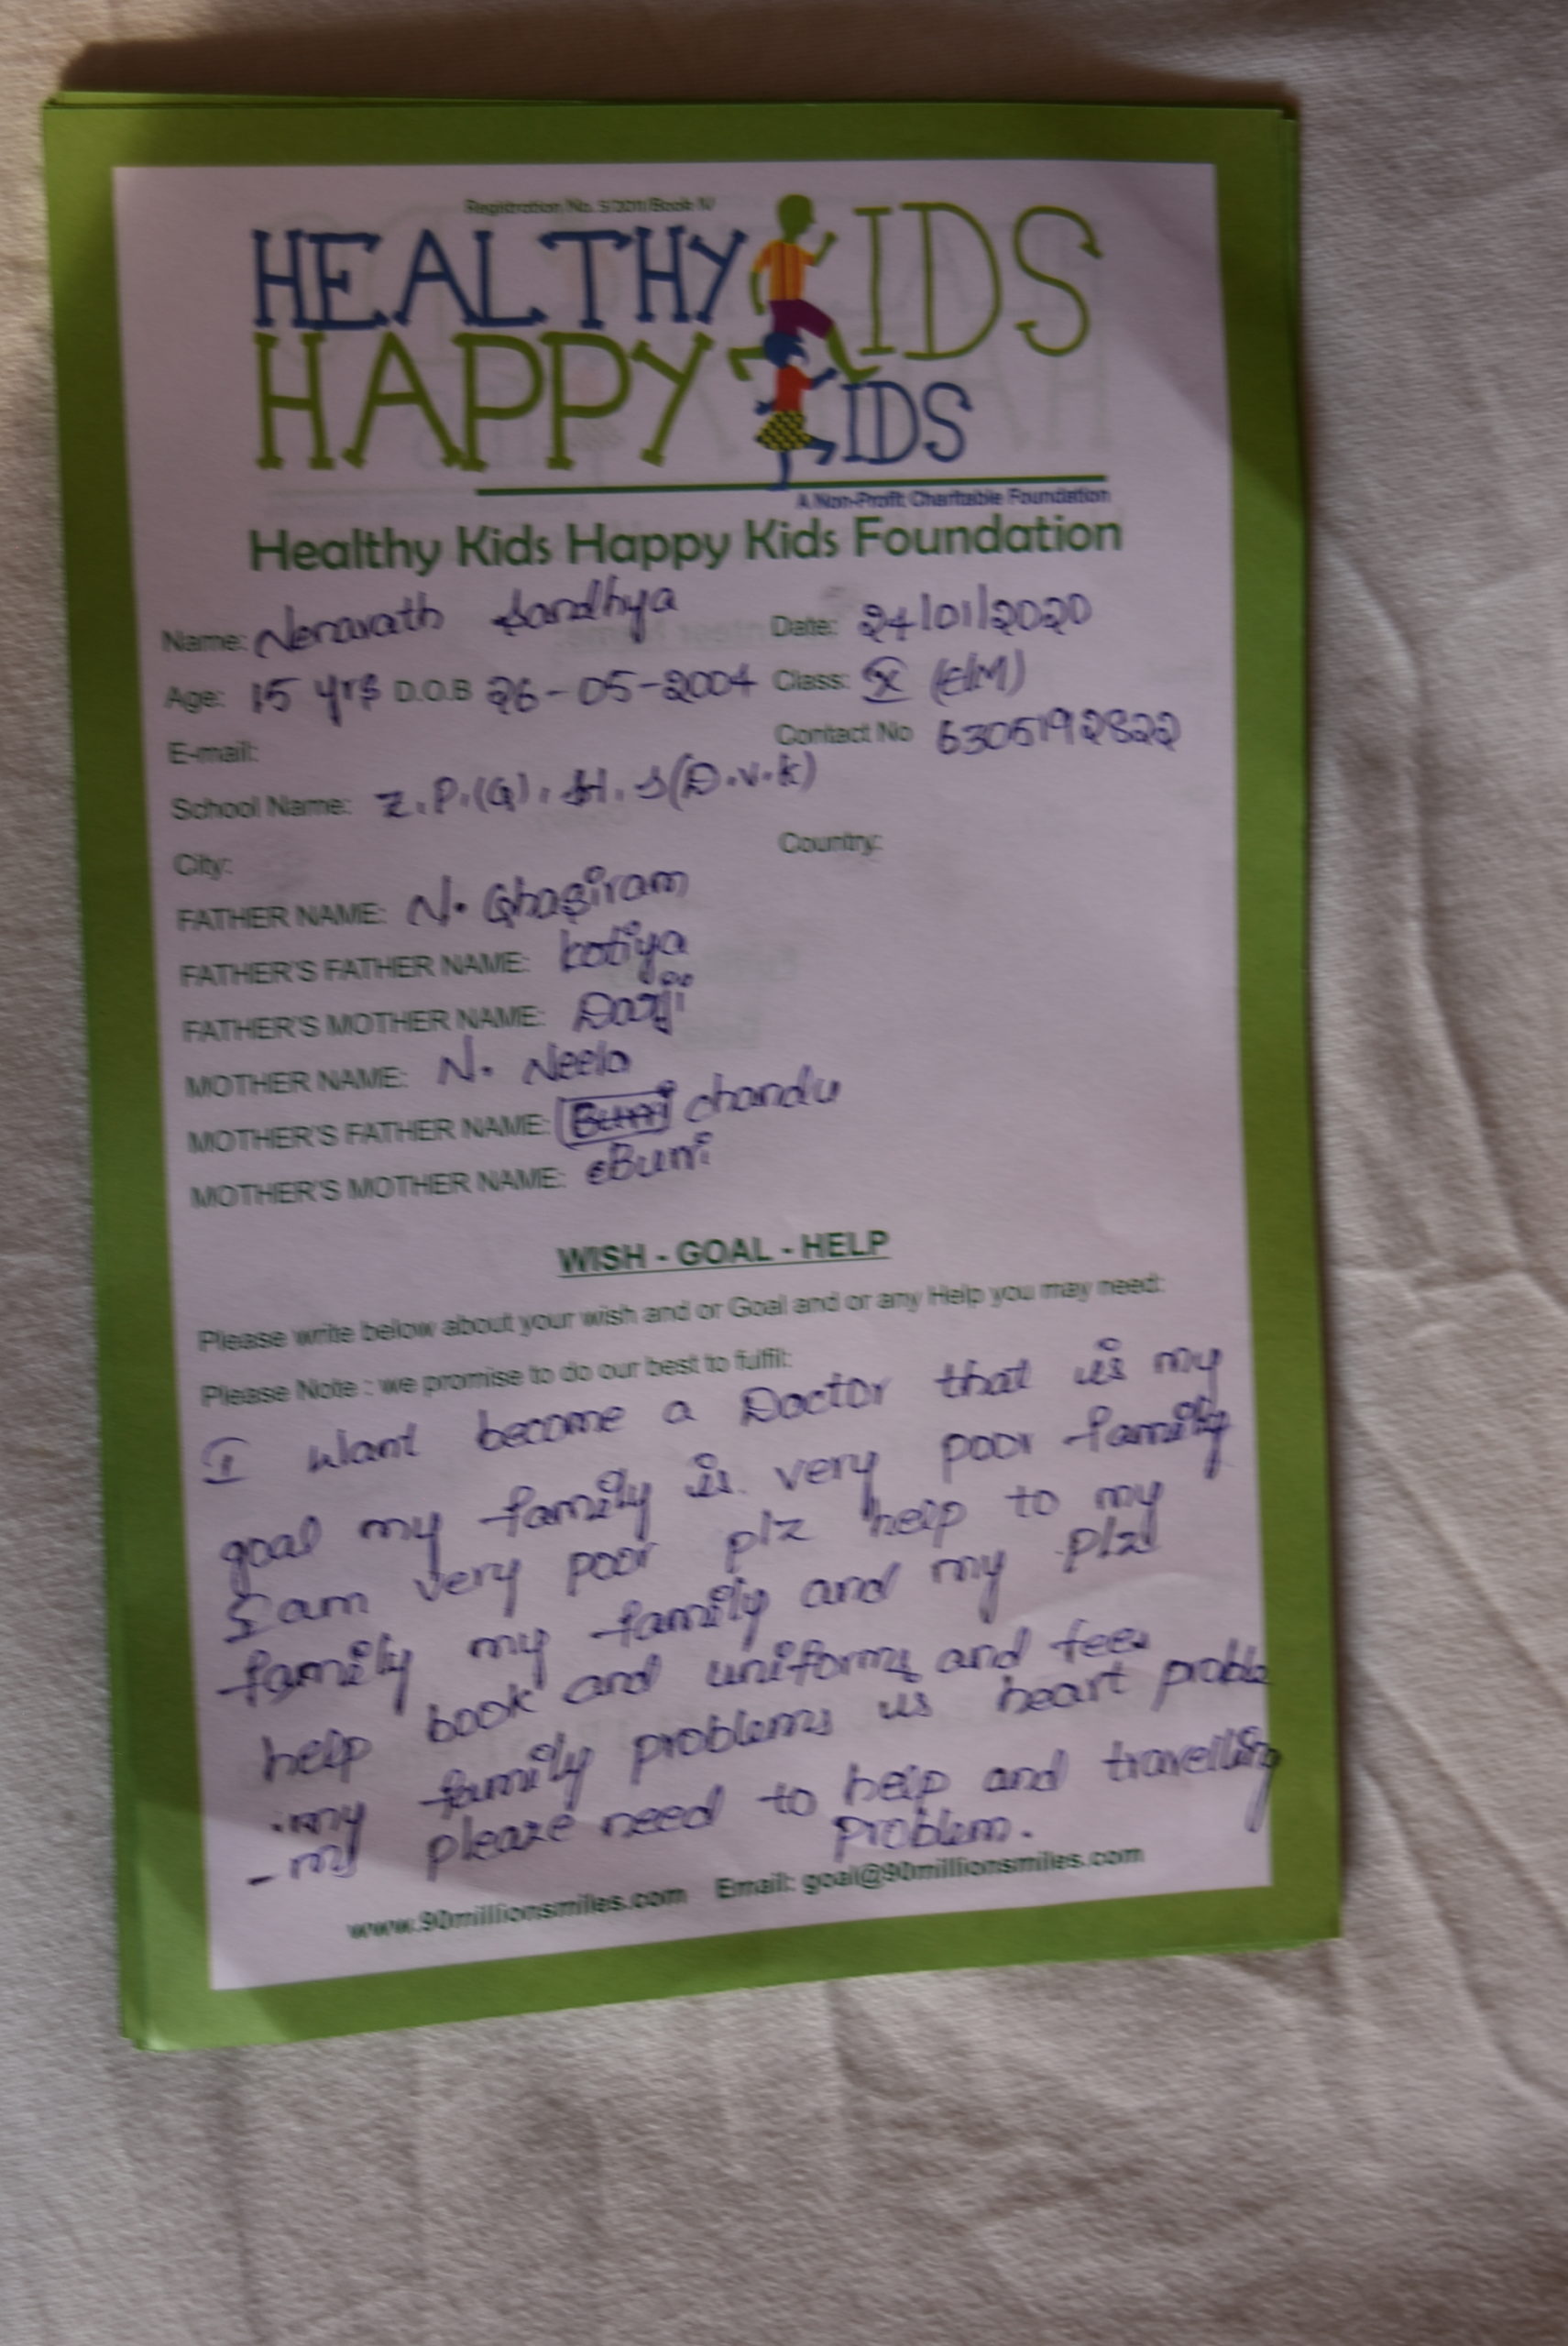 Registration No. 5/2011/Book IV
HEALTHY KIDS
HAPPY KIDS
A Non-Profit Charitable Foundation
Healthy Kids Happy Kids Foundation
Name: Nenavath Sandhya Date: 24/01/2020
Age: 15 yrs D.O.B 26-05-2004 Class: X (E/M)
E-mail: Contact No 6305192822
School Name: Z.P.(G).H.S(D.V.K)
City: Country:
FATHER NAME: N. Ghasiram
FATHER'S FATHER NAME: kotiya
FATHER'S MOTHER NAME:
MOTHER NAME: N. Neela
MOTHER'S FATHER NAME: chandu
MOTHER'S MOTHER NAME: Buri
WISH - GOAL - HELP
Please write below about your wish and or Goal and or any Help you may need:
Please Note : we promise to do our best to fulfil:
I want become a Doctor that is my
goal my family is very poor family
I am very poor plz help to my
family my family and my plz
help book and uniforms and fees
my family problems is heart proble
- my please need to help and travelling
problem.
www.90millionsmiles.com Email: goal@90millionsmiles.com